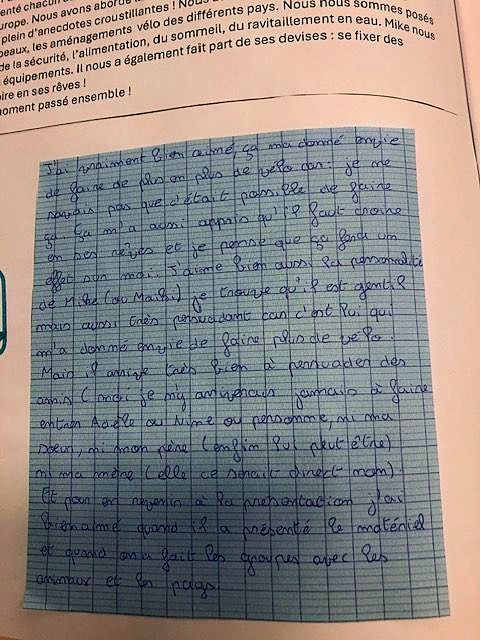 enté chacun
urope. Nous avons abordé l
plein d'anecdotes croustillantes ! Nous
beaux, les aménagements vélo des différents pays. Nous nous sommes posés
de la sécurité, l'alimentation, du sommeil, du ravitaillement en eau. Mike nous
équipements. Il nous a également fait part de ses devises : se fixer des
oire en ses rêves !
moment passé ensemble !
J'ai vraiment bien aimé, ça ma donné envie
de faire de plus en plus de vélo car: je ne
savais pas que c'était possible de faire
ça. Ça m'a aussi appris qu'il faut croire
en ses rêves et je pense que ça fera un
effet sur moi. J'aime bien aussi la personnalité
de Mike (ou Maiki) je trouve qu'il est gentil
mais aussi très persuadant car c'est lui qui
m'a donné envie de faire plus de vélo.
Mais il arrive très bien à persuader des
amis (moi je m'y arriverais jamais à faire
entrer Adèle ou Nine ou personne, ni ma
soeur, ni mon père (enfin lui peut être)
ni ma mère (elle ce serait direct non).
Et pour en revenir à la présentation j'ai
bien aimé quand il a présenté le matériel
et quand on a fait les groupes avec les
animaux et les pays